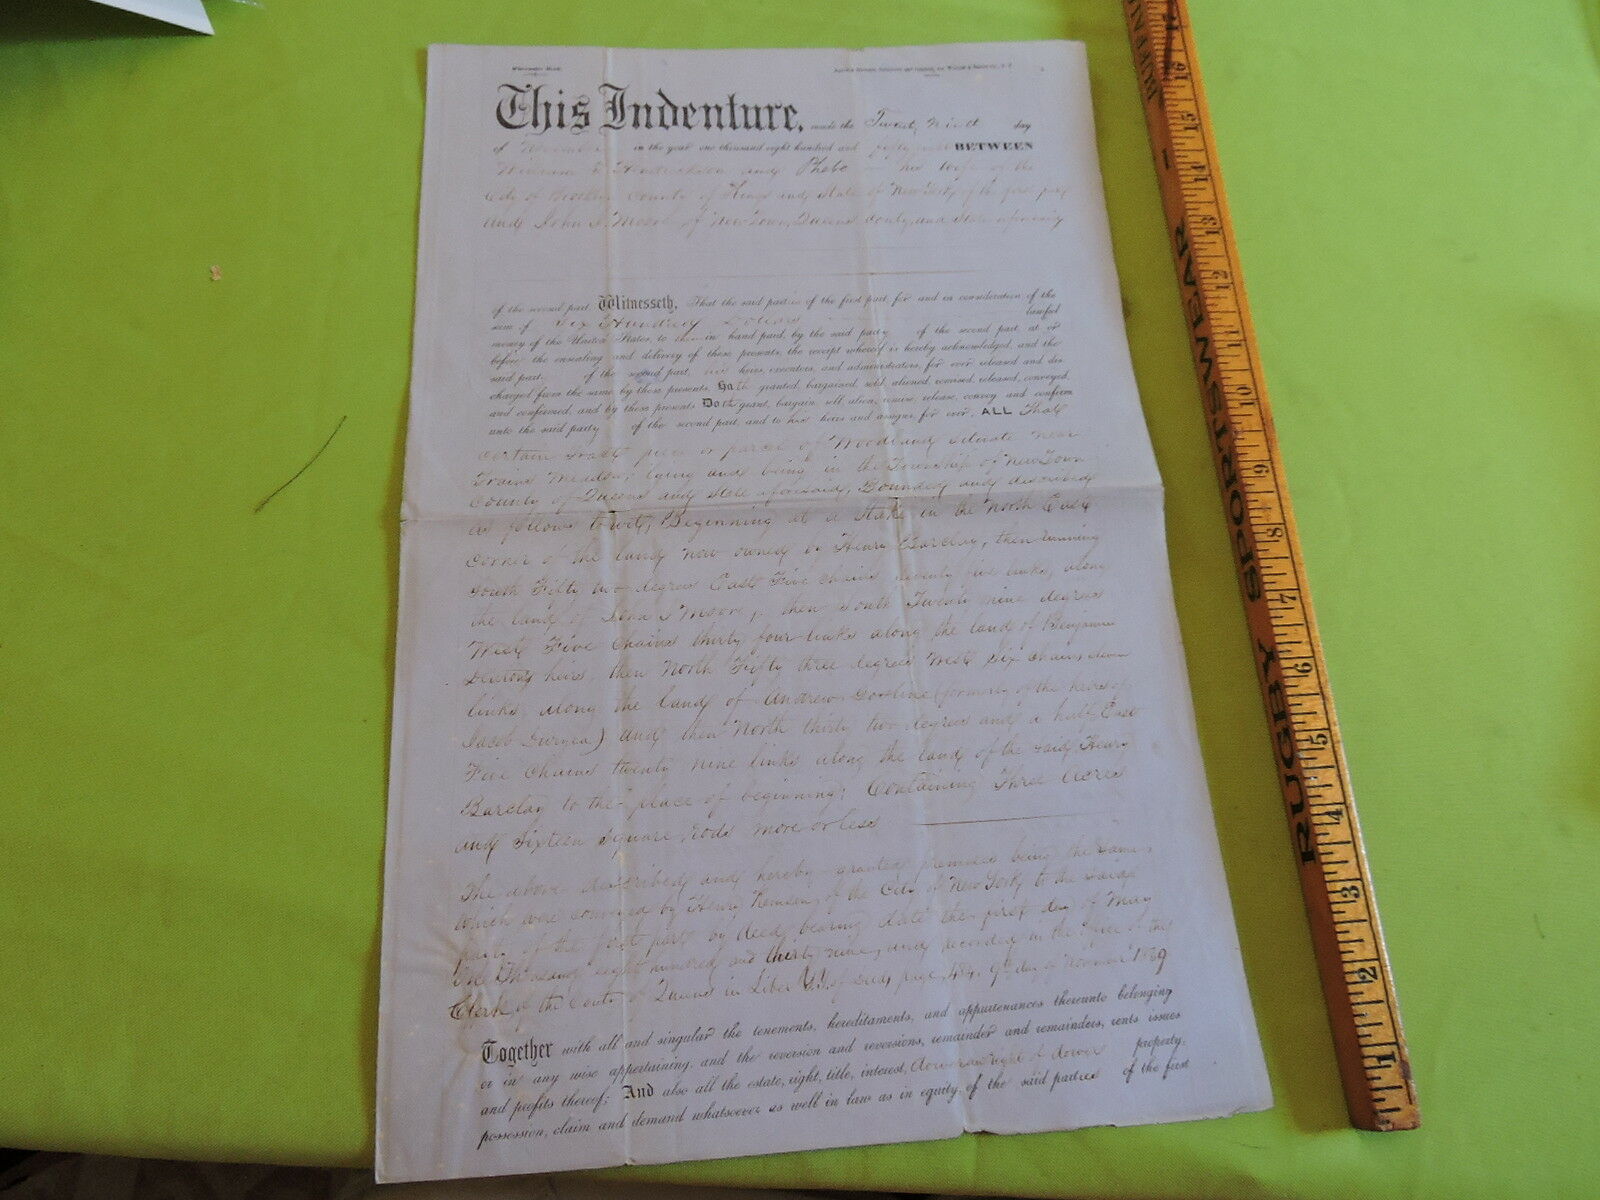 This Indenture, made the Twenty Ninth day
of November in the year one thousand eight hundred and fifty BETWEEN
William Hendrickson and Phebe his wife of the
City of Brooklyn County of Kings and State of New York of the first part
and John S. Moore of New Town, Queens County, and State aforesaid
of the second part, Witnesseth, That the said parties of the first part, for and in consideration of the
sum of Six Hundred Dollars lawful
money of the United States, to them in hand paid, by the said party of the second part, at or
before the ensealing and delivery of these presents, the receipt whereof is hereby acknowledged, and the
said part of the second part, his heirs, executors, and administrators, for ever released and dis
charged from the same by these presents, Ha th granted, bargained, sold, aliened, remised, released, conveyed,
and confirmed, and by these presents Do th grant, bargain, sell, alien, remise, release, convey and confirm
unto the said party of the second part, and to his heirs and assigns for ever, ALL That
certain tract piece or parcel of Woodland situate near
Trains Meadow, lying and being in the Township of New Town
County of Queens and State aforesaid, Bounded and described
as follows to wit, Beginning at a Stake in the North East
corner of the land now owned by Henry Barclay, then running
south Fifty two degrees East Five chains seventy five links, along
the land of John S Moore, then South Twenty nine degrees
West Five Chains thirty four links along the land of Benjamin
heirs, then North Fifty three degrees West Six chains eleven
links, along the land of Andrew Gosline (formerly of the heirs of
Jacob Duryea) and then North thirty two degrees and a half East
Five Chains twenty nine links along the land of the said Henry
Barclay to the place of beginning; Containing Three Acres
and Sixteen Square rods more or less
The above described and hereby granted premises being the same
which were conveyed by Henry Remsen, of the City of New York, to the said
party of the first part by deed, bearing date the first day of May
One thousand eight hundred and thirty nine, and recorded in the Office of the
Clerk of the County of Queens in Liber of deeds page, 484, 9th day of November 1839
Together with all and singular the tenements, hereditaments, and appurtenances thereunto belonging
or in any wise appertaining, and the reversion and reversions, remainder and remainders, rents issues
and profits thereof; And also all the estate, right, title, interest, dower and right of dower property,
possession, claim and demand whatsoever as well in law as in equity, of the said parties of the first
RUGBY SPORTSWEAR
1 2 3 4 5 6 7 8 9 10 12 13 15 16